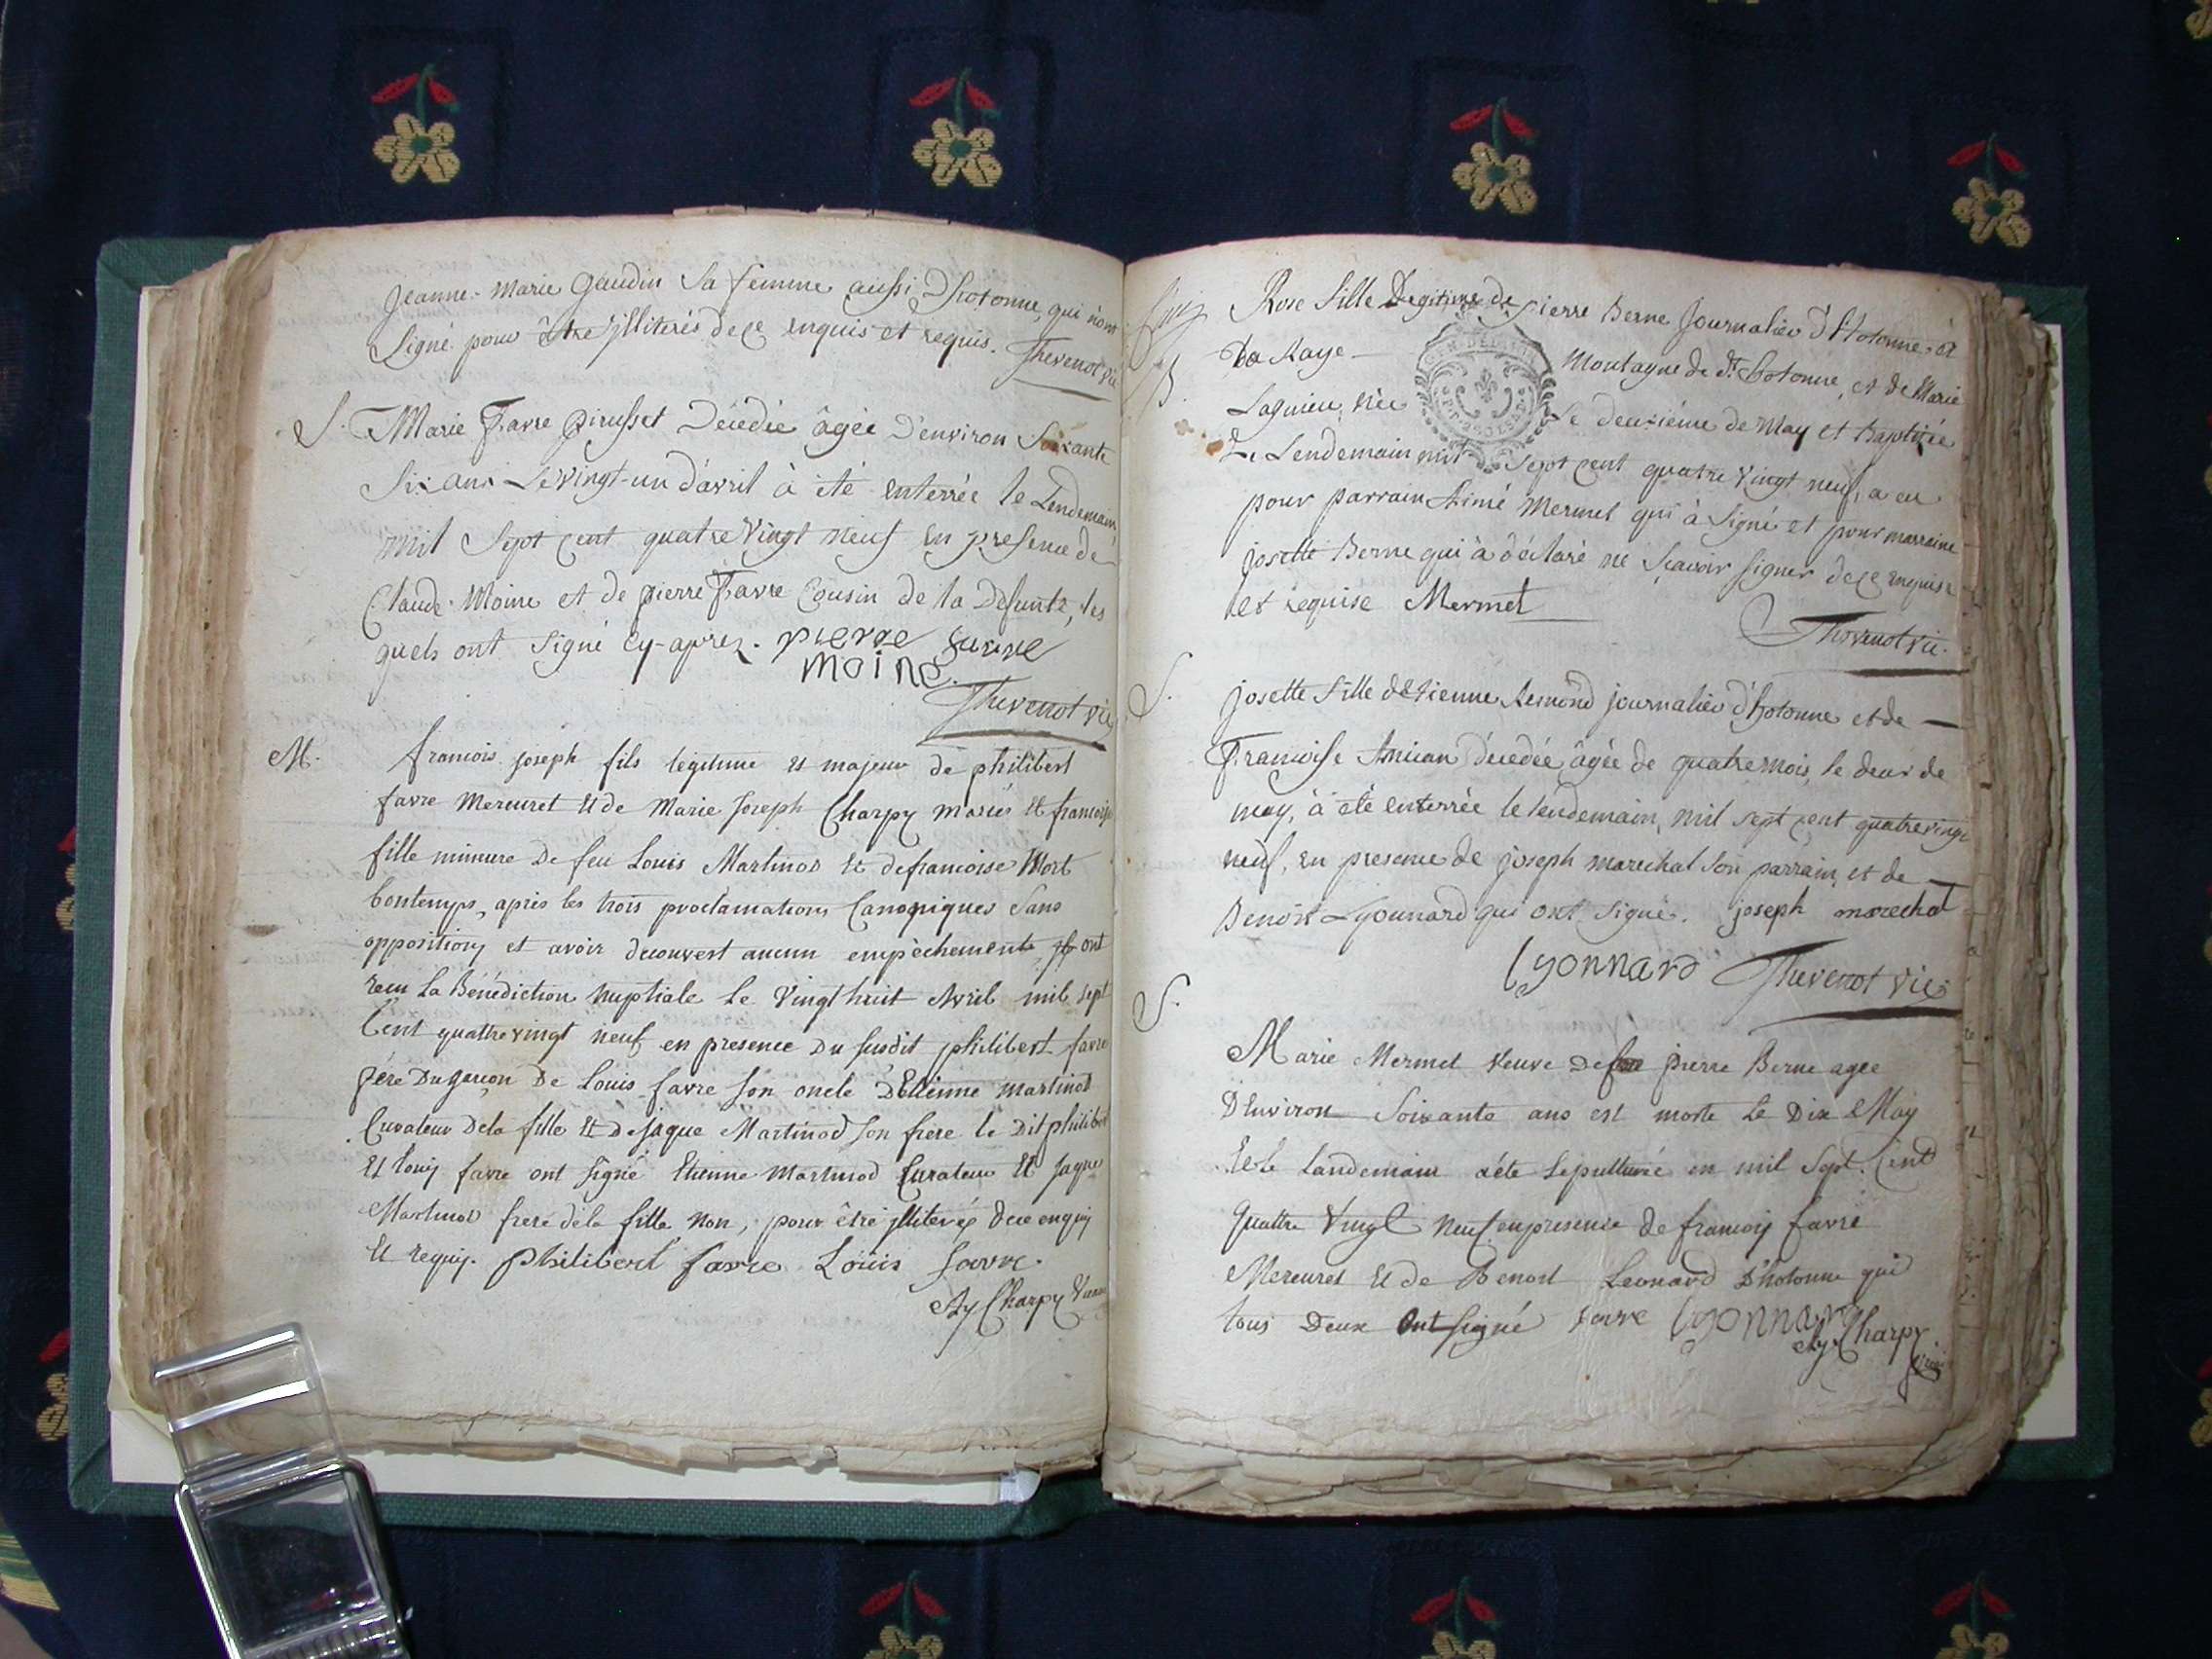 Jeanne-Marie Gaudin Sa femme aussi D'hotonne, qui n'ont
Signé pour être jlliterés de ce enquis et requis. Thevenot vic
S. Marie Favre Pirusset Décédée âgée D'environ Soixante
Six ans Le vingt-un d'avril à été enterrée le Lendemain
mil Sept cent quatre Vingt neuf en presence de
Claude Moine et de pierre Favre Cousin de la Defunte, les
quels ont Signé Cy-aprez. pierre favre
moine
Thevenot vic
M. francois joseph fils legitime et majeur de philibert
favre Mercuret et de Marie Joseph Charpy mariés et francoise
fille mineure De feu Louis Martinod et de francoise Mort
bontemps, après les trois proclamations Canoniques Sans
opposition et avoir decouvert aucun empêchement, ils ont
recu La Bénédiction Nuptiale Le Vingt huit Avril mil sept
Cent quattre vingt neuf en presence Du susdit philibert favre
père Du garçon De Louis favre son oncle D'Etienne martinod
Curateur De la fille et De jaque Martinod son frere le Dit philibert
et Louis favre ont signé Etienne Martinod Curateur et jaque
Martinod frere de la fille Non, pour être jlliterés de ce enquis
et requis. philibert favre Louis favre
Ay Charpy Vicaire
B. Rose fille Legitime de Pierre Berne Journalier d'Hotonne, à
La Raye Montagne de dt hotonne, et de Marie
Laguieu, Née Le deuxième de May et baptisée
Le Lendemain mil Sept cent quatre vingt neuf, a eu
pour parrain Aimé Mermet qui à Signé et pour marraine
josette Berne qui à déclaré ne Sçavoir Signer de ce enquise
et requise Mermet
Thevenot vic.
S. josette fille d'Etienne Aemond journalier d'hotonne et de
Francoise Amican décedée âgée de quatre mois, le deux de
may, à été enterrée le lendemain, mil sept cent quatre vingt
neuf, en presence de joseph marechal Son parrain, et de
Benoît Lyonnard qui ont signé. joseph marechal
Lyonnard Thevenot vic
S. Marie Mermet Veuve De feu pierre Berne agee
D'Environ Soixante ans est morte Le Dix May
et Le Landemain a été Sepulturée en mil Sept Cent
Quattre Vingt Neuf en presence de francois favre
Mercuret et de Benoit Leonard D'hotonne qui
tous Deux Ont signé favre Lyonnard
Ay Charpy
vic